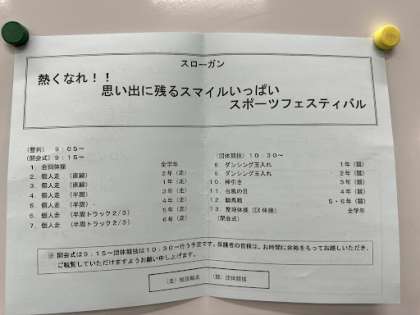 スローガン
熱くなれ！！
思い出に残るスマイルいっぱい
スポーツフェスティバル
（整列） ９：０５〜
（開会式）９：１５〜
１．全校体操 全学年
２．個人走 （直線） ２年（走）
３．個人走 （直線） １年（走）
４．個人走 （半周） ３年（走）
５．個人走 （半周） ４年（走）
６．個人走 （半周トラック２/３） ５年（走）
７．個人走 （半周トラック２/３） ６年（走）
（団体競技）１０：３０〜
８．ダンシング玉入れ １年（競）
９．ダンシング玉入れ ２年（競）
１０．棒引き ３年（競）
１１．台風の目 ４年（競）
１２．騎馬戦 ５・６年（競）
１３．整理体操 全学年
（閉会式）
※ 開会式は９：１５〜団体競技は１０：３０〜行う予定です。保護者の皆様は、お時間に余裕をもってお越しいただき、
ご観覧していただけますようお願い申し上げます。
（競：団体競技）